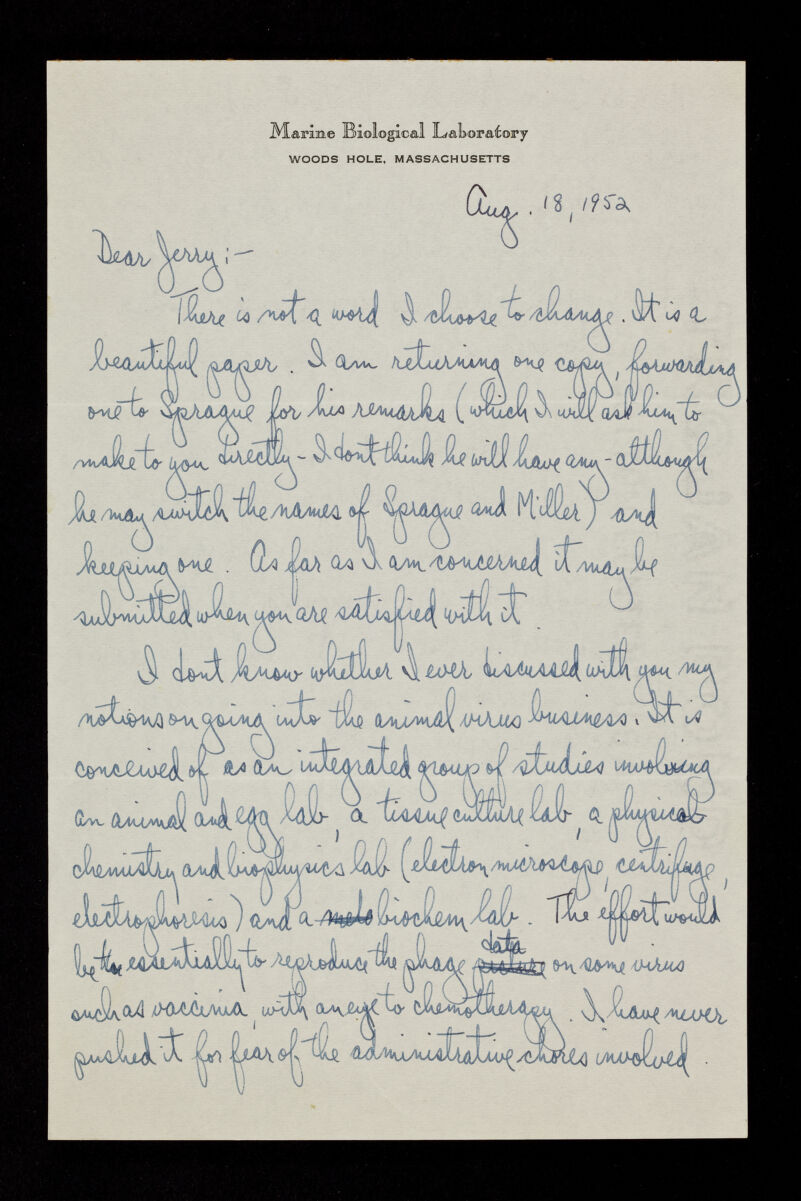 Marine Biological Laboratory
WOODS HOLE, MASSACHUSETTS
Aug. 18, 1952
Dear Jerry:-
There is not a word I choose to change. It is a
beautiful paper. I am returning one copy, forwarding
one to Sprague for his remarks (which I will ask him to
make to you directly - I dont think he will have any - although
he may switch the names of Sprague and Miller) and
keeping one. As far as I am concerned it may be
submitted when you are satisfied with it.
I dont know whether I ever discussed with you my
notions on going into the animal virus business. It is
conceived of as an integrated group of studies involving
an animal and egg lab, a tissue culture lab, a physical
chemistry and biophysics lab (electron microscope, centrifuge,
electrophoresis) and a biochem lab. The effort would
be essentially to reproduce the phage data on some virus
such as vaccinia, with an eye to chemotherapy. I have never
pushed it for fear of the administrative chores involved.